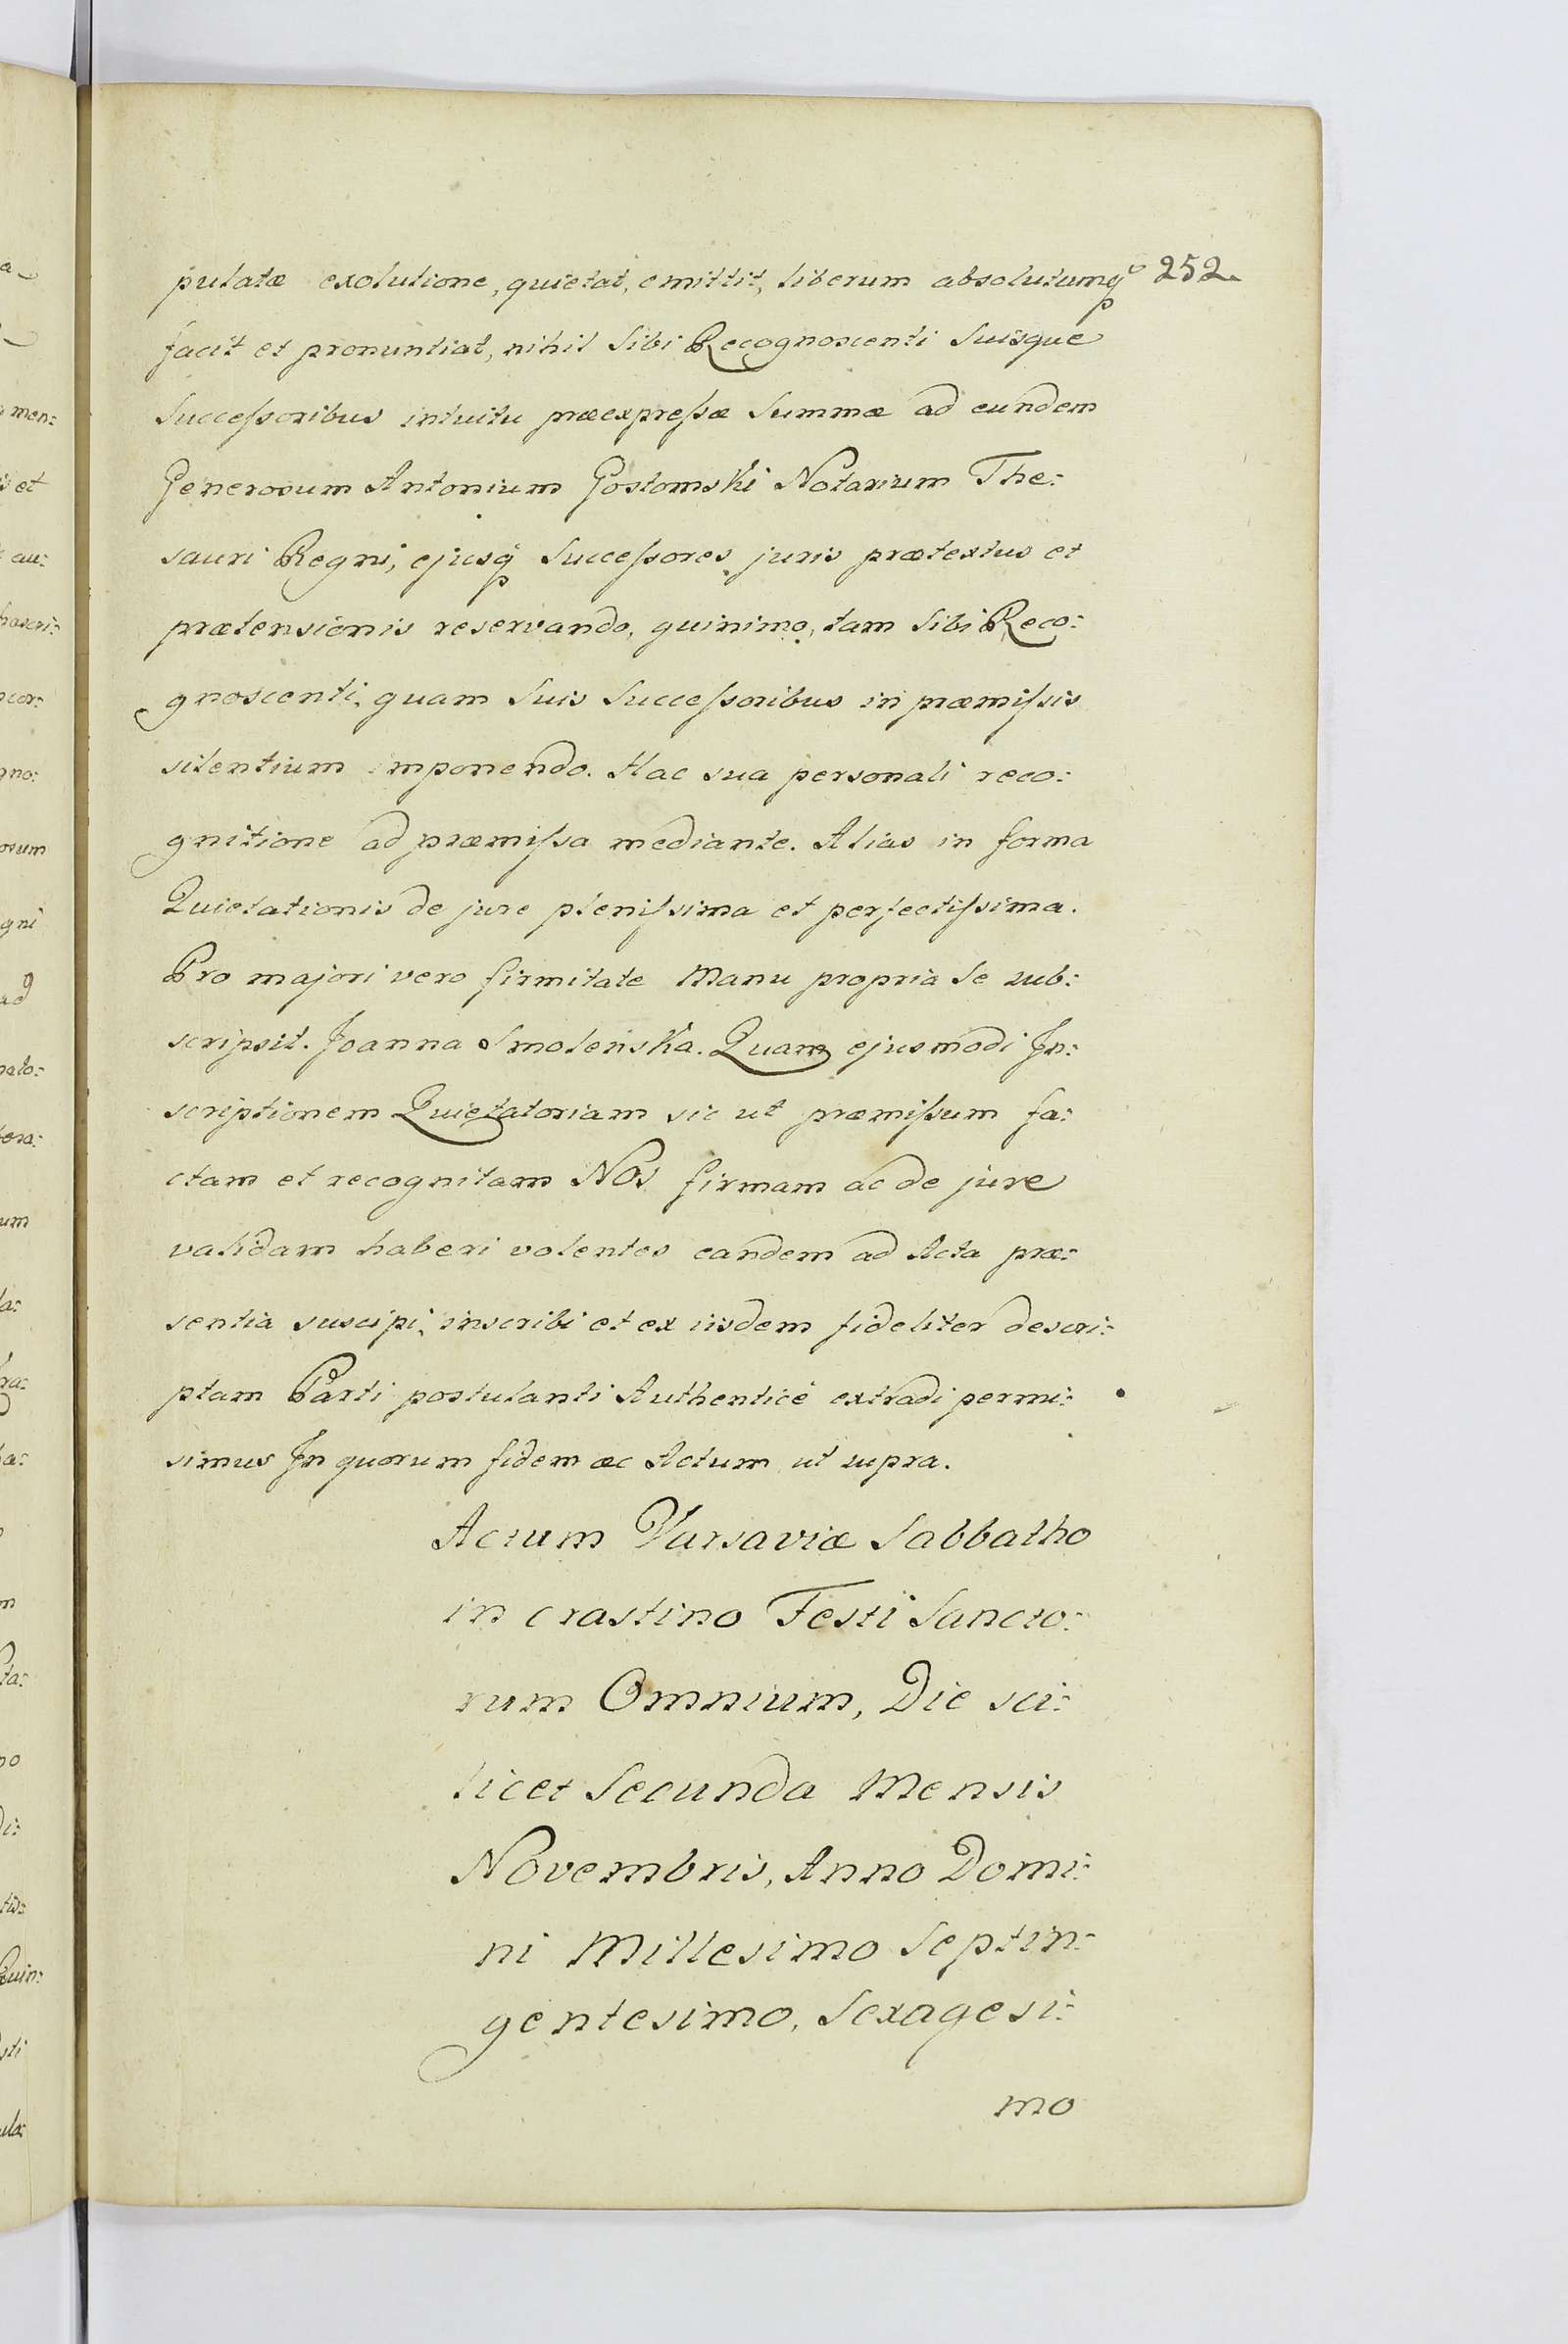 pulatæ exolutione, quietat, emittit, liberum absolutumq 252.
facit et pronuntiat, nihil Sibi Recognoscenti Suisque
Succeſsoribus intuitu præexpreſsæ Summæ ad eundem
Generosum Antonium Gostomski Notarium The:
sauri Regni, ejusq Succeſsores juris prætextus et
prætensionis reservando, quinimo, tam Sibi Reco:
gnoscenti, quam Suis Succeſsoribus in præmiſsis
silentium imponendo. Hac sua personali reco:
gnitione ad præmiſsa mediante. Alias in forma
Quietationis de jure pleniſsima et perfectiſsima.
Pro majori vero firmitate Manu propria Se sub:
scripsit. Joanna Smoleńska. Quam ejusmodi In:
scriptionem Quietatoriam sic ut præmiſsum fa:
ctam et recognitam Nos firmam ac de jure
validam haberi volentes eandem ad Acta præ:
sentia suscipi, inscribi et ex iisdem fideliter descri:
ptam Parti postulanti Authenticè extradi permi:
simus In quorum fidem ac Actum ut supra.
Actum Varsaviæ Sabbatho
in crastino Festi Sancto:
rum Omnium, Die sci:
licet Secunda Mensis
Novembris, Anno Domi:
ni Millesimo Septin:
gentesimo, Sexagesi:
mo